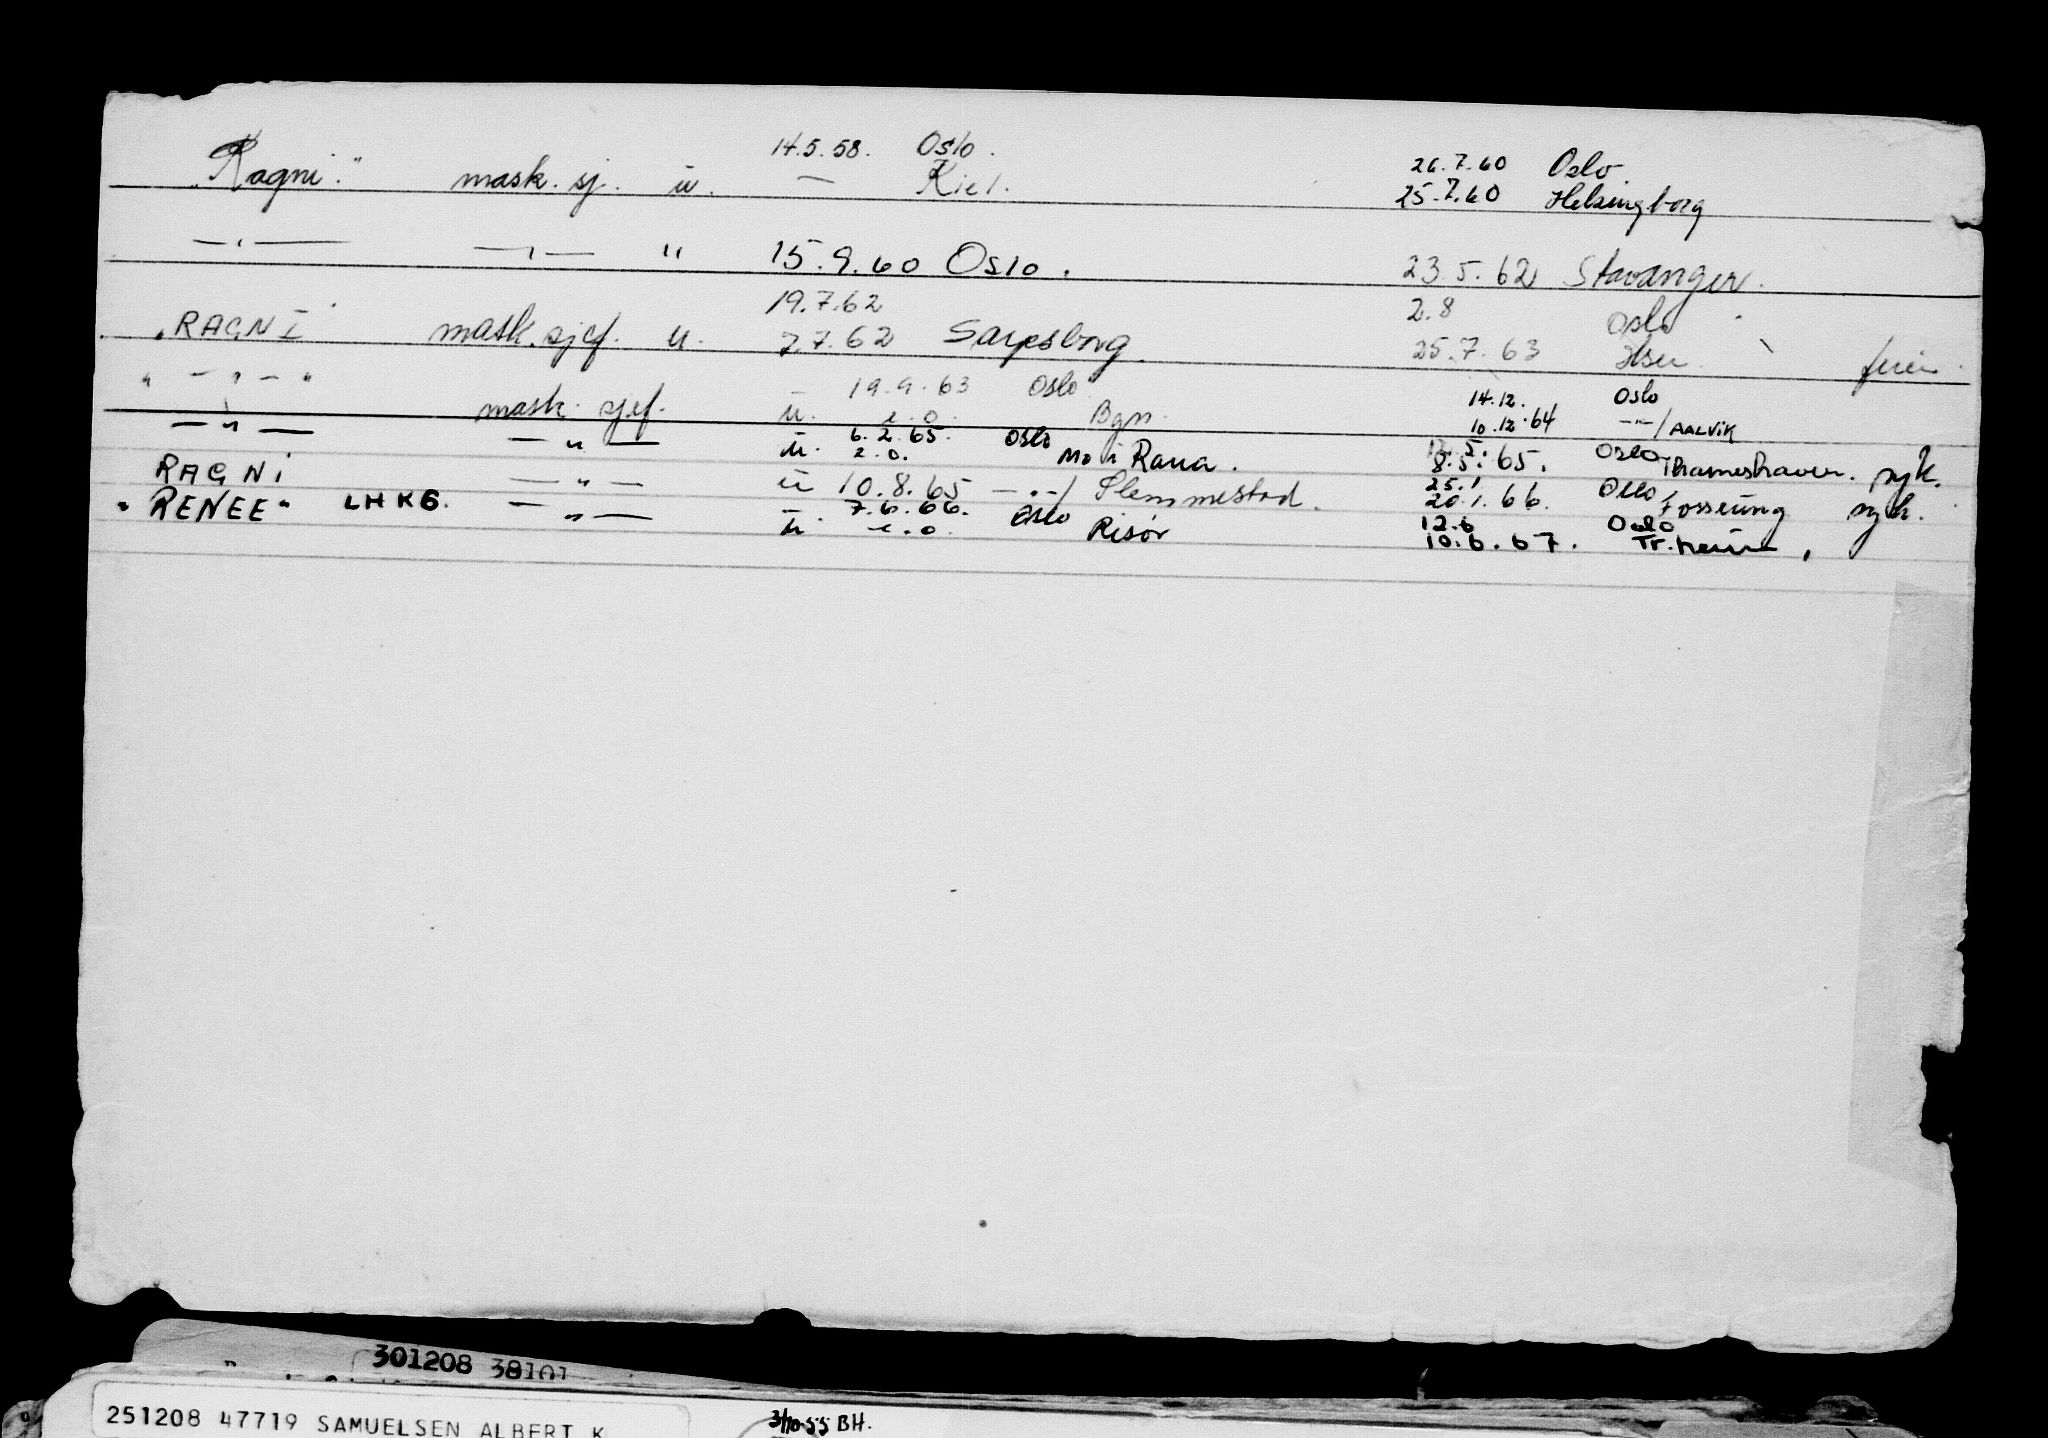 14.5.58. Oslo. 26.7.60 Oslo.
"Ragni." mask. sj. u. — Kiel. 25.7.60 Helsingborg
—〃— —〃— " 15.9.60 Oslo. 23.5.62 Stavanger.
19.7.62 2.8 Oslo
"RAGNI" mask.sjef. u. 7.7.62 Sarpsborg. 25.7.63 ferie.
" — " — " 19.9.63 Oslo 14.12. Oslo
mask. sjef. u. e.o. Bgn. 10.12.64 —"—/AALVIK
—"— —"— u. 6.2.65. Oslo Oslo
e.o. Mo i Rana. 8.5.65. Thamshavn. syk.
RAGNI —"— u 10.8.65 —"—/ Slemmestad. 25.1 Oslo
20.1.66. syk.
"RENEE" LHKG. —"— u. 7.6.66. Oslo 12.6 Oslo
e.o. Risør 10.6.67. Tr.heim,
301208 38101
251208 47719 SAMUELSEN ALBERT K
3/10-55 BH.